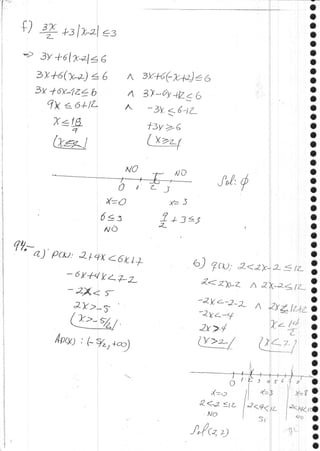 f) 3x/2 + 3|x-2| ≤ 3
⇒ 3x + 6|x-2| ≤ 6
3x+6(x-2) ≤ 6 ∧ 3x+6(-x+2) ≤ 6
3x+6x-12 ≤ 6 ∧ 3x-6x+12 ≤ 6
9x ≤ 6+12 ∧ -3x ≤ 6-12
x ≤ 18/9 +3x ≥ 6
x ≤ 2 x ≥ 2
NO NO
0 1 2 3 Sol: ∅
x=0 x=3
6 ≤ 3 9/2 + 3 ≤ 3
NO
94.-
a) p(x): 2+4x < 6x+7
-6x+4x < 7-2
-2x < 5
2x > -5
x > -5/2
Ap(x): (-5/2, +∞)
b) q(x): 2 < 2x-2 ≤ 12
2 < 2x-2 ∧ 2x-2 ≤ 12
-2x < -2-2 ∧ 2x ≤ 12+2
-2x < -4
2x > 4 x ≤ 14/2
x > 2 x ≤ 7
0 1 2 3 4 5 6 7
x=0 x=3 x=8
NO SI